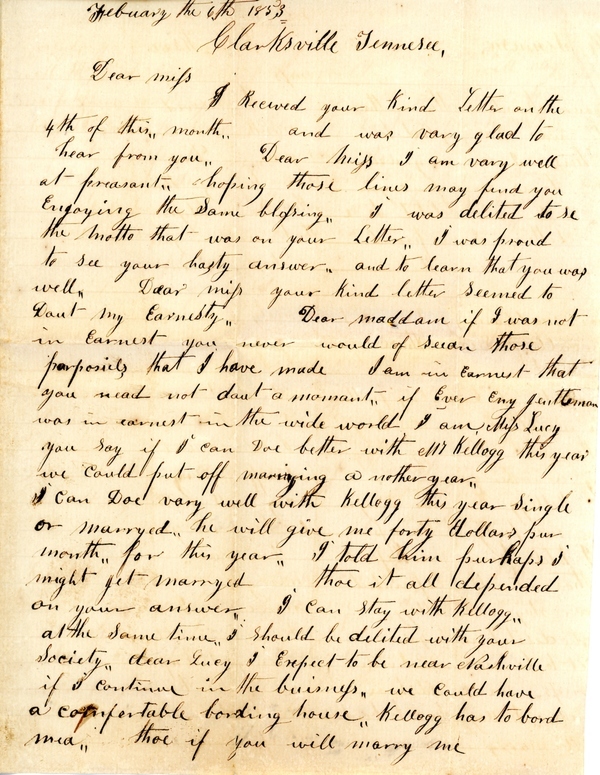 Febuary the 6th 1853
Clarksville Tennesee,
Dear miss
I Recived your Kind Letter on the
4th of this,, month,, and was vary glad to
hear from you,, Dear Miss I am vary well
at preasant,, hoping those lines may find you
Engoying the same blessing,, I was delited to se
the Motto that was on your Letter,, I was proud
to see your hasty answer,, and to learn that you was
well,, Dear miss your Kind letter seemed to
Dout my Earnesty,, Dear maddam if I was not
in Earnest you never would of seean those
purposiels that I have made I am in earnest that
you nead not daut a momant,, if Ever Eny gentleman
was in earnest in the wide world I am Miss Lucy
you say if I can Doe better with Mr Kellogg this year
we could put off marrying a nother year,,
I can Doe vary well with Kellogg this year single
or marryed,, he will give me forty dollars pur
month,, for this year,, I told him purhaps I
might get marryed thoe it all depended
on your answer,, I can stay with Kellogg,,
at the same time,, I should be delited with your
society,, dear Lucy I Expect to be near Nashville
if I continue in the buisness,, we could have
a comfortable bording house,, Kellogg has to bord
mea,, thoe if you will marry me